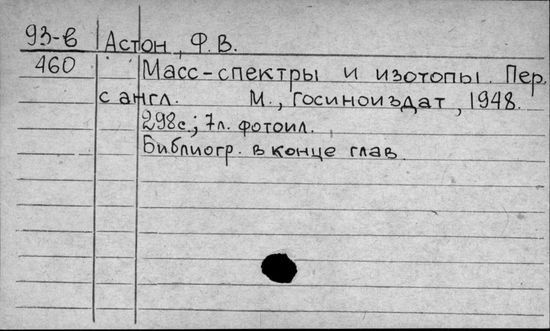 93-в Астон, Ф.В.
460 Масс-спектры и изотопы. Пер.
с англ. М., Госиноиздат, 1948.
298с.; 7л. фотоил.
Библиогр. в конце глав.